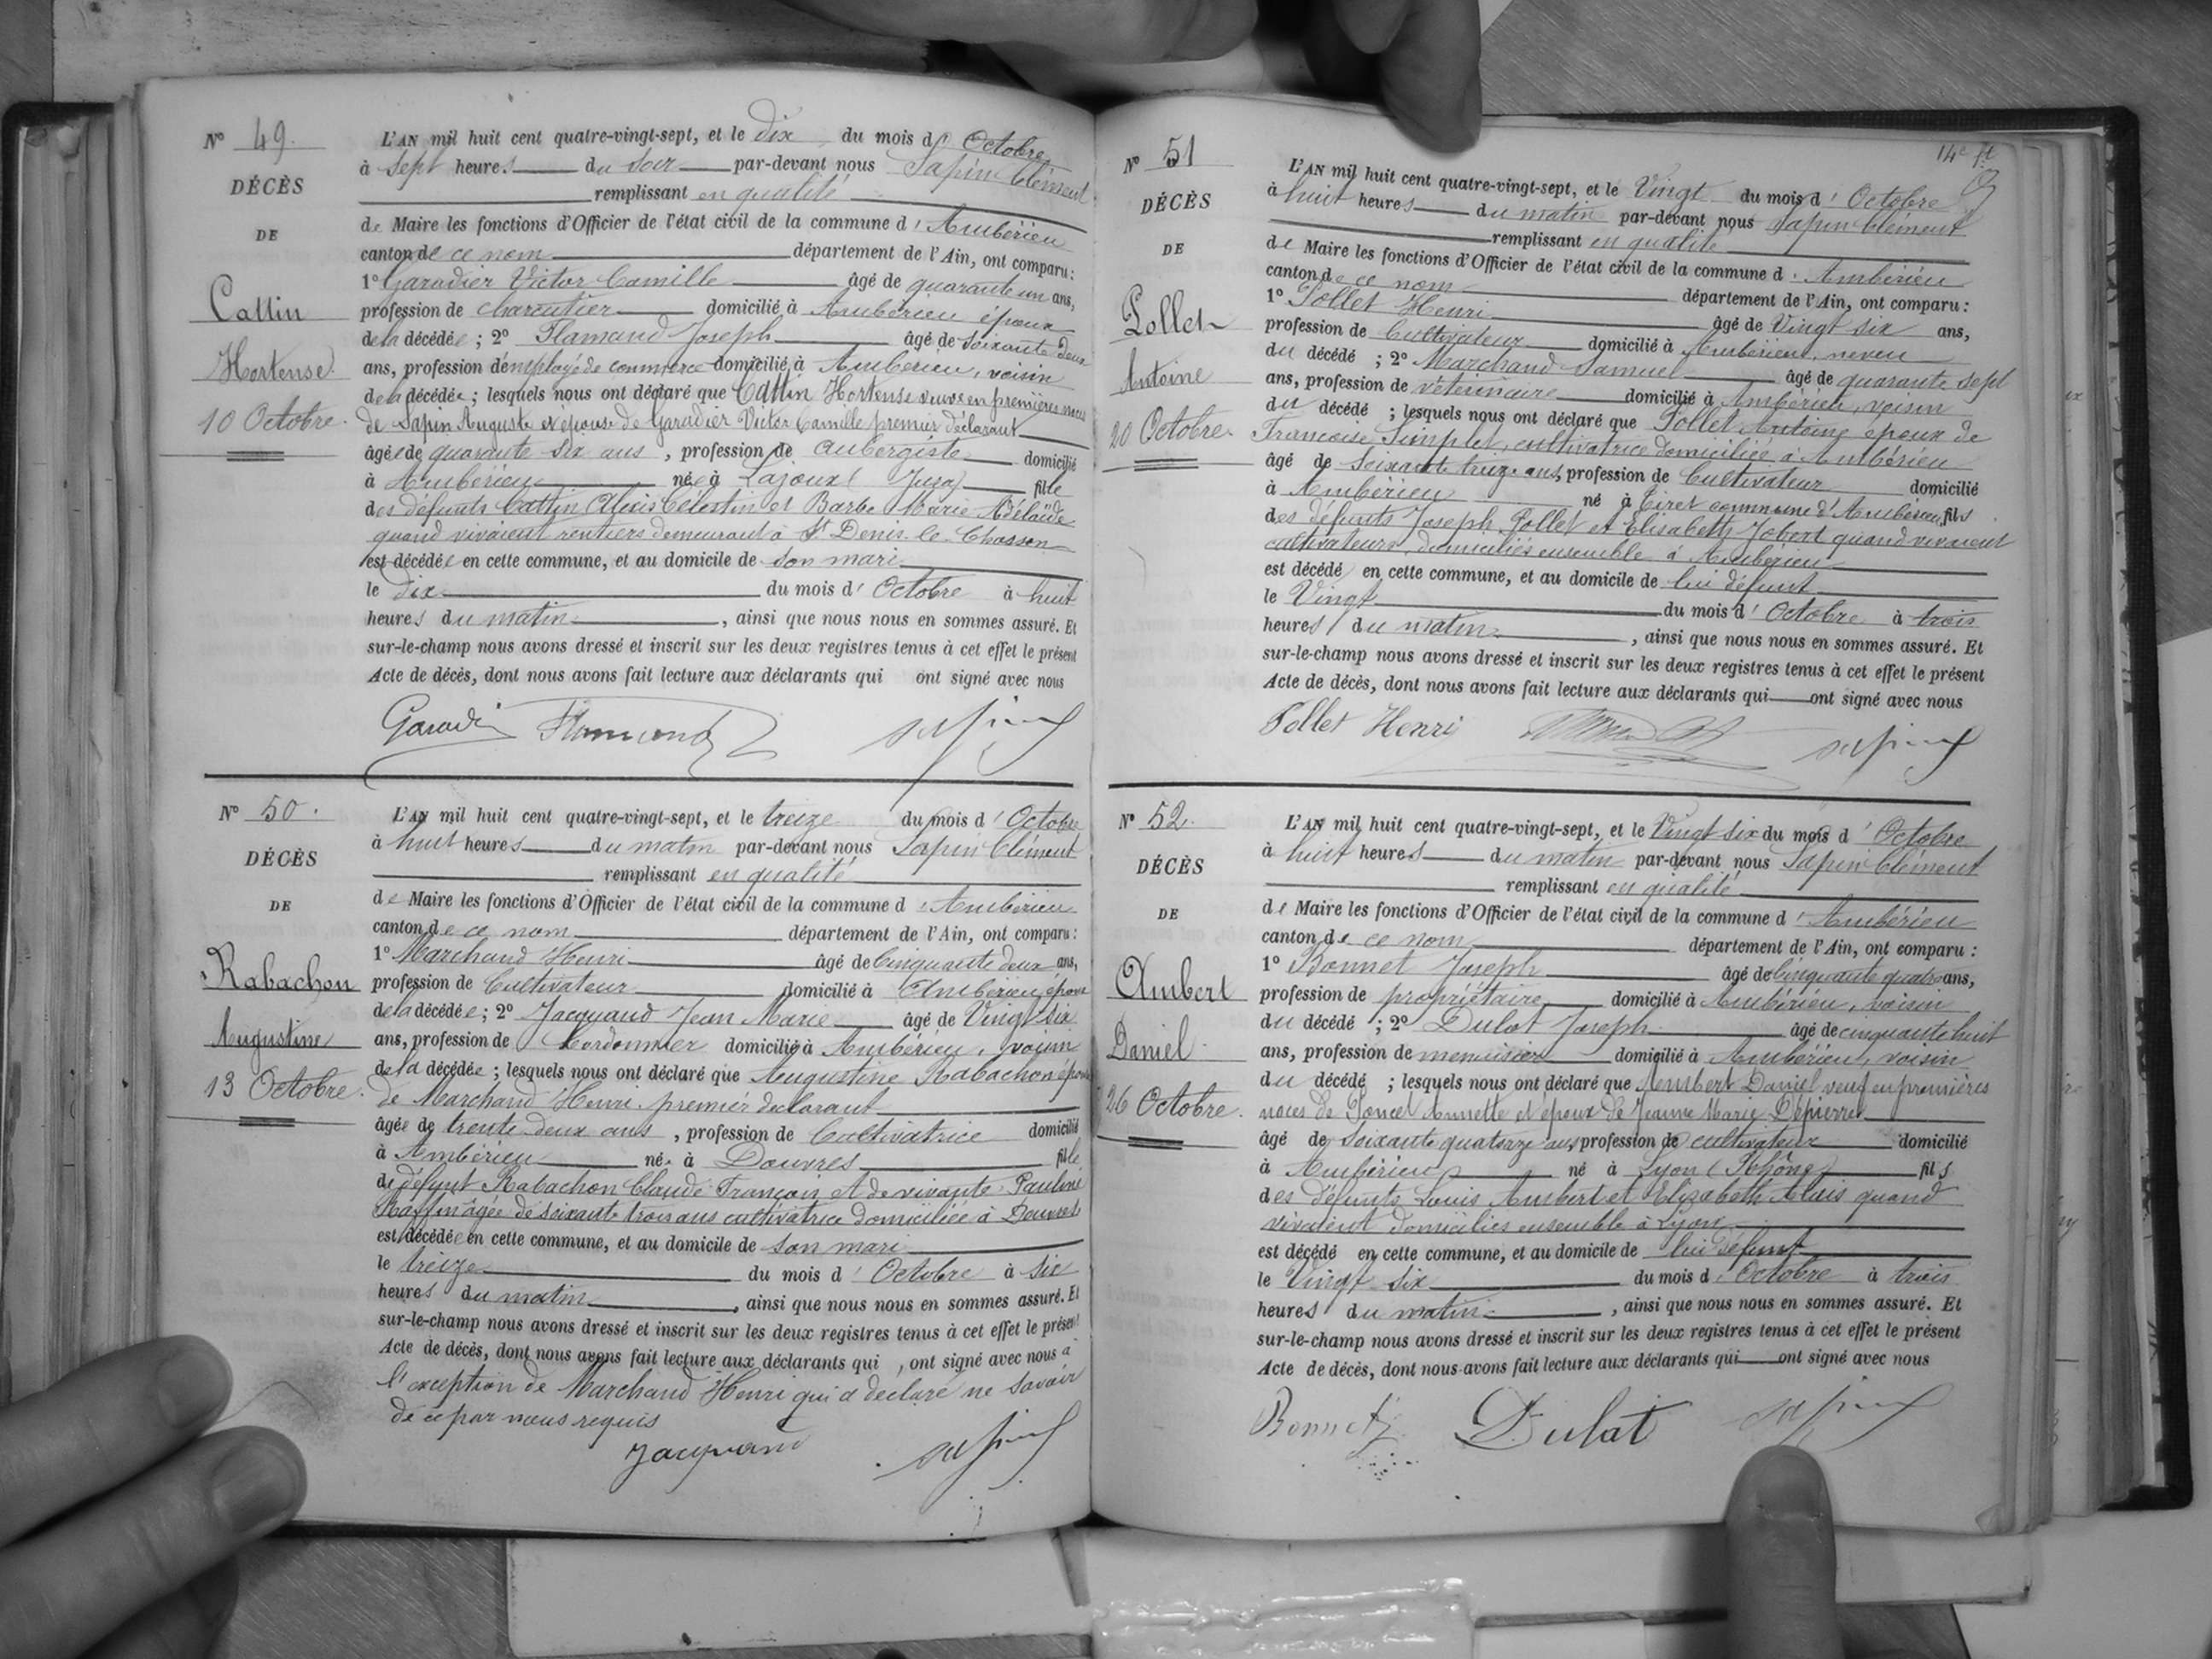 N° 49.
DÉCÈS
DE
Cattin
Hortense
10 Octobre.
L'AN mil huit cent quatre-vingt-sept, et le dix du mois d' Octobre
à sept heures du soir par-devant nous Sapin Clément
remplissant en qualité
de Maire les fonctions d'Officier de l'état civil de la commune d' Ambérieu
canton de ce nom département de l'Ain, ont comparu :
1° Garadier Victor Camille âgé de quarante un ans,
profession de charcutier domicilié à Ambérieu époux
de la décédée ; 2° Flamand Joseph âgé de soixante deux
ans, profession d'employé de commerce domicilié à Ambérieu, voisin
de la décédée ; lesquels nous ont déclaré que Cattin Hortense veuve en premières noces
de Sapin Auguste et épouse de Garadier Victor Camille premier déclarant
âgée de quarante six ans , profession de aubergiste domicilié
à Ambérieu née à Lajoux ( Jura) fille
des défunts Cattin Alexis Célestin et Barbe Marie Adélaïde
quand vivaient rentiers demeurant à St Denis-le-Chosson
est décédée en cette commune, et au domicile de son mari
le dix du mois d' Octobre à huit
heures du matin , ainsi que nous nous en sommes assuré. Et
sur-le-champ nous avons dressé et inscrit sur les deux registres tenus à cet effet le présent
Acte de décès, dont nous avons fait lecture aux déclarants qui ont signé avec nous
Flamand Sapin
N° 50.
DÉCÈS
DE
Rabachon
Augustine
13 Octobre.
L'AN mil huit cent quatre-vingt-sept, et le treize du mois d' Octobre
à huit heures du matin par-devant nous Sapin Clément
remplissant en qualité
de Maire les fonctions d'Officier de l'état civil de la commune d' Ambérieu
canton de ce nom département de l'Ain, ont comparu :
1° Marchand Henri âgé de Cinquante deux ans,
profession de Cultivateur domicilié à Ambérieu, époux
de la décédée ; 2° Jacquand Jean Marie âgé de Vingt six
ans, profession de Cordonnier domicilié à Ambérieu, voisin
de la décédée ; lesquels nous ont déclaré que Augustine Rabachon épouse
de Marchand Henri premier déclarant
âgée de trente deux ans , profession de Cultivatrice domicilié
à Ambérieu née à Douvres fille
de défunt Rabachon Claude François et de vivante Pauline
Raffin âgée de soixante trois ans cultivatrice domiciliée à Douvres
est décédée en cette commune, et au domicile de son mari
le treize du mois d' Octobre à six
heures du matin , ainsi que nous nous en sommes assuré. Et
sur-le-champ nous avons dressé et inscrit sur les deux registres tenus à cet effet le présent
Acte de décès, dont nous avons fait lecture aux déclarants qui , ont signé avec nous à
l'exception de Marchand Henri qui a déclaré ne savoir
de ce par nous requis
Jacquand Sapin
14e ft
N° 51
DÉCÈS
DE
Pollet
Antoine
20 Octobre.
L'AN mil huit cent quatre-vingt-sept, et le Vingt du mois d' Octobre
à huit heures du matin par-devant nous Sapin Clément
remplissant en qualité
de Maire les fonctions d'Officier de l'état civil de la commune d' Ambérieu
canton de ce nom département de l'Ain, ont comparu :
1° Pollet Henri âgé de Vingt six ans,
profession de Cultivateur domicilié à Ambérieu, neveu
du décédé ; 2° Marchand Samuel âgé de quarante sept
ans, profession de vétérinaire domicilié à Ambérieu, voisin
du décédé ; lesquels nous ont déclaré que Pollet Antoine époux de
Françoise Simplet, cultivatrice domiciliée à Ambérieu
âgé de soixante treize ans, profession de Cultivateur domicilié
à Ambérieu né à Tiret commune d'Ambérieu, fils
des défunts Joseph Pollet et Elisabeth Jobert quand vivaient
cultivateurs, domiciliés ensemble à Ambérieu
est décédé en cette commune, et au domicile de lui défunt
le Vingt du mois d' Octobre à trois
heures du matin , ainsi que nous nous en sommes assuré. Et
sur-le-champ nous avons dressé et inscrit sur les deux registres tenus à cet effet le présent
Acte de décès, dont nous avons fait lecture aux déclarants qui ont signé avec nous
Pollet Henri Sapin
N° 52.
DÉCÈS
DE
Ambert
Daniel
26 Octobre.
L'AN mil huit cent quatre-vingt-sept, et le Vingt six du mois d' Octobre
à huit heures du matin par-devant nous Sapin Clément
remplissant en qualité
de Maire les fonctions d'Officier de l'état civil de la commune d' Ambérieu
canton de ce nom département de l'Ain, ont comparu :
1° Bonnet Joseph âgé de Cinquante quatre ans,
profession de propriétaire domicilié à Ambérieu, voisin
du décédé ; 2° Dulat Joseph âgé de cinquante huit
ans, profession de menuisier domicilié à Ambérieu, voisin
du décédé ; lesquels nous ont déclaré que Ambert Daniel veuf en premières
noces de Poncet Annette et époux de Jeanne Marie Dépierre
âgé de soixante quatorze ans, profession de cultivateur domicilié
à Ambérieu né à Lyon ( Rhône) fils
des défunts Louis Ambert et Elizabeth quand
vivaient domiciliés ensemble à Lyon
est décédé en cette commune, et au domicile de lui défunt
le Vingt six du mois d' Octobre à trois
heures du matin , ainsi que nous nous en sommes assuré. Et
sur-le-champ nous avons dressé et inscrit sur les deux registres tenus à cet effet le présent
Acte de décès, dont nous avons fait lecture aux déclarants qui ont signé avec nous
Bonnet Dulat Sapin